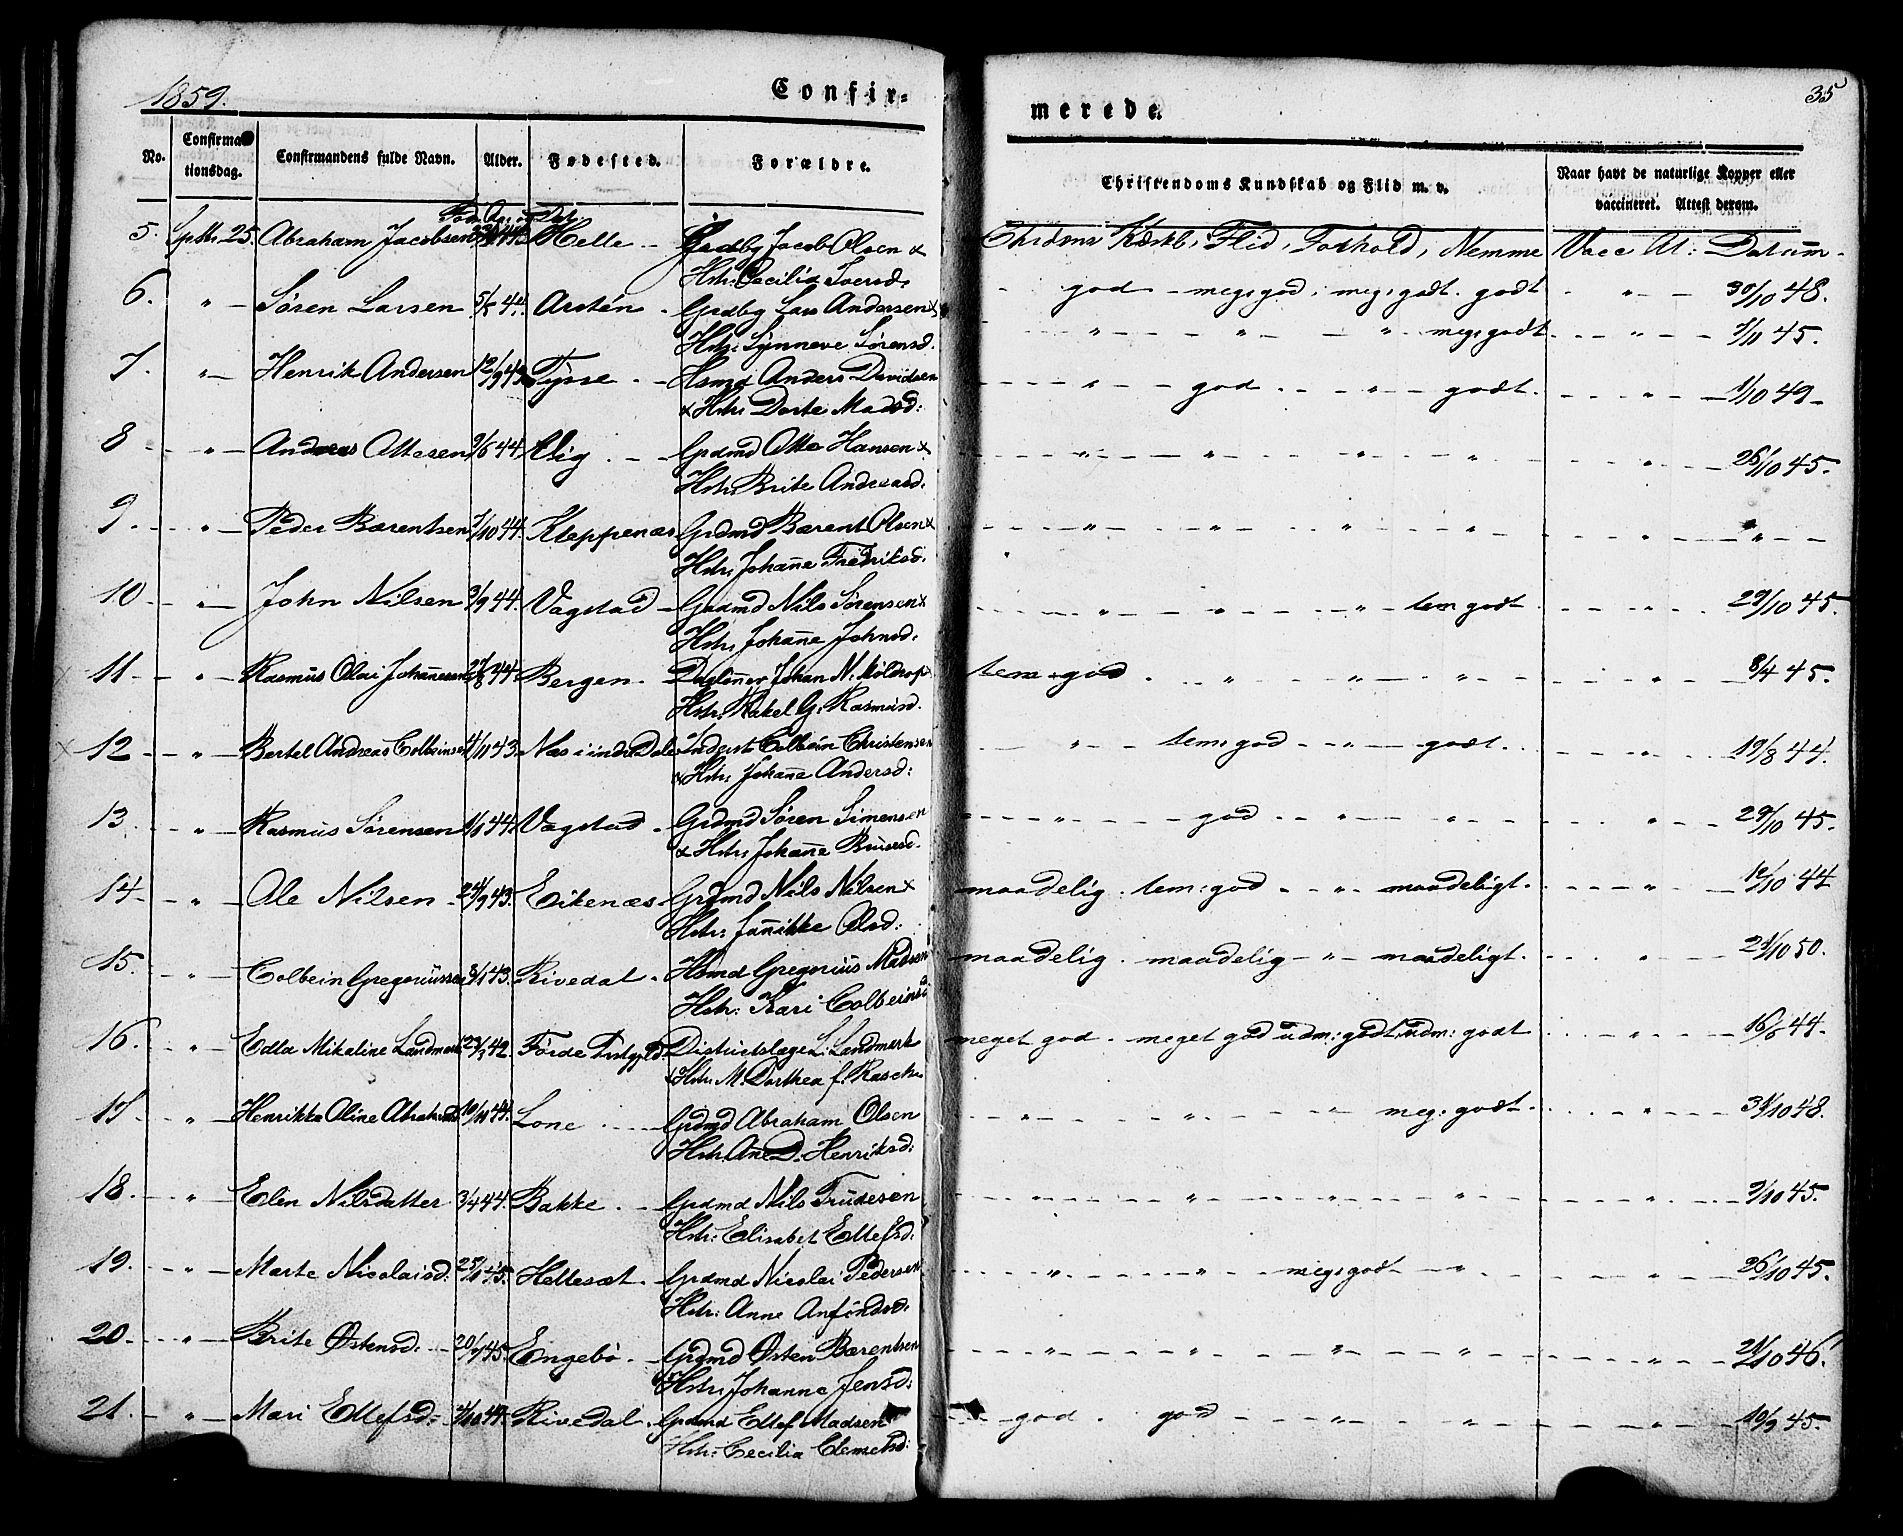 1859.
Confir=
merede.
35
No.
Confirma=
tionsdag.
Confirmandens fulde Navn.
Alder.
Fødested.
Forældre.
Christendoms Kundskab og Flid m. v.
Naar havt de naturlige Kopper eller
vaccineret. Attest derom.
Chrdms Kdskb, Flid, Forhold, Nemme Vacc At: Datum.
5. Sptb. 25. Abraham Jacobsen Helle Grdbg Jacob Olsen &
Hstr: Cecilia Iversd. god meg: god, meg: godt. godt " 30/10 48.
6. " Søren Larsen 44 Arstén Grdbg Lars Andersen &
Hstr: Synneve Sørensd. " " " meg: godt " 7/11 45.
7. " Henrik Andersen 12/9 43 Tysse Hsmd Anders Davidsen
& Hstr: Dorte Madsd: " god " godt. " 1/10 49
8 " Andreas Ottesen 9/6 44 Vig Grdmd Otto Hansen &
Hstr: Brite Andreasd. " " " " " 26/10 45.
9. " Peder Bærentsen 7/10 44. Kleppenæs Grdmd Bærent Olsen &
Hstr: Johanne Fredriksd. " " " " " "
10 " John Nilsen 3/9 44. Vagstad Grdmd Nils Sørensen &
Hstr: Johanne Johnsd: " " " tem godt " 29/10 45.
11 " Rasmus Olai Johannesen 44 Bergen Johan N.
Hstr: Rakel G. Rasmusd. tem: god " " " " 8/4 45.
12 " Bertel Andreas Colbeinsen 4/11 43. Næs i indre Dale Inderst Colbein Christensen
& Hstr: Johanne Andersd: " tem: god " godt. " 19/8 44.
13 " Rasmus Sørensen 44. Vagstad Grdmd Søren Simensen
& Hstr: Johanne " god " " " 29/10 45.
14 " Ole Nilsen 24/9 43. Eikenæs Grdmd Nils Nilsen &
Hstr: Jannikke Olsd: maadelig. tem: god " maadeligt. " 12/10 44
15. " Colbein Gregoriussen 43. Rivedal Hsmd Gregorius Madsen
Hstr: Kari Colbeinsd maadelig. maadelig " maadeligt. " 24/10 50.
16. " Edla Mikaline Landmark 42. Førde Districtslæge Landmark
& Hstr. M. Dorthea f. Rasch. meget god. meget god udm: godt, udm: godt " 16/8 44.
17 " Henrikka Aline Abrahamsd 44. Lone Grdmd Abraham Olsen
Hstr. Ane D. Henriksd: " " " meg: godt. " 31/10 48.
18. " Elen Nilsdatter 3/4 44. Bakke Grdmd Nils Trudesen
Hstr: Elisabet Ellefsd: " " " " " 9/10 45.
19. " Marte Nicolaisd. 45. Hellesæt Grdmd Nicolai Pedersen
Hstr: Anne Anfindsd. " " meg: godt " " 26/10 45.
20 " Brite Østensd. 45. Engebø Grdmd Østen Bærentsen
Hstr: Johanne Jensd: " " " " " 21/10 46.
21. " Mari Ellefsd: 4/10 44. Rivedal Grdmd Ellef Madsen
Hstr: Cecilia Clemetsd: god. god " " " 10/9 45.